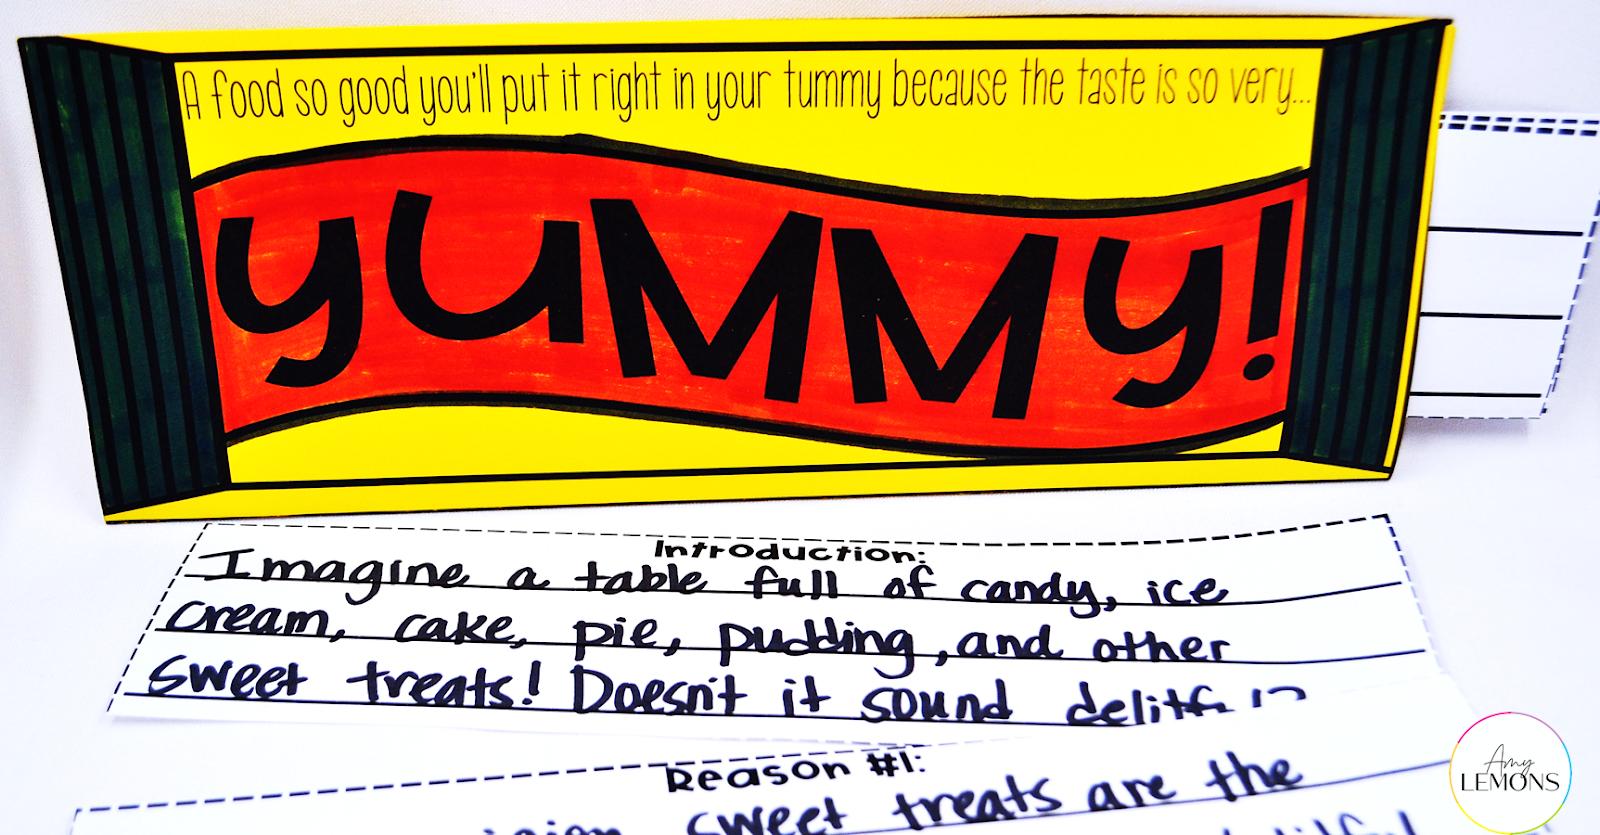 A food so good you'll put it right in your tummy because the taste is so very...
YUMMY!
Introduction:
Imagine a table full of candy, ice
cream, cake, pie, pudding, and other
sweet treats! Doesn't it sound
Reason #1:
sweet treats are the
Amy
LEMONS